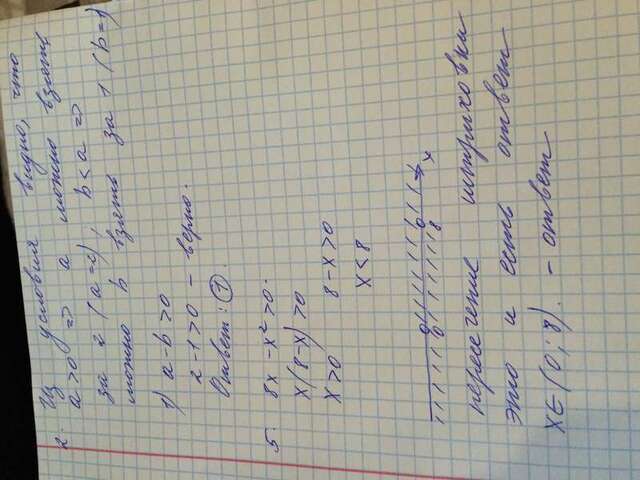 2. Из условия видно, что
a>0 => a можно взять
за 2 (a=2), b<a =>
можно b взять за 1 (b=1)
1) a-b>0
2-1>0 - верно.
Ответ: 1.
5. 8x - x² >0.
x(8-x) >0
x>0 8-x>0
x<8
0 0 x
0 8
пересечение штриховки
это и есть ответ
x∈(0;8). - ответ